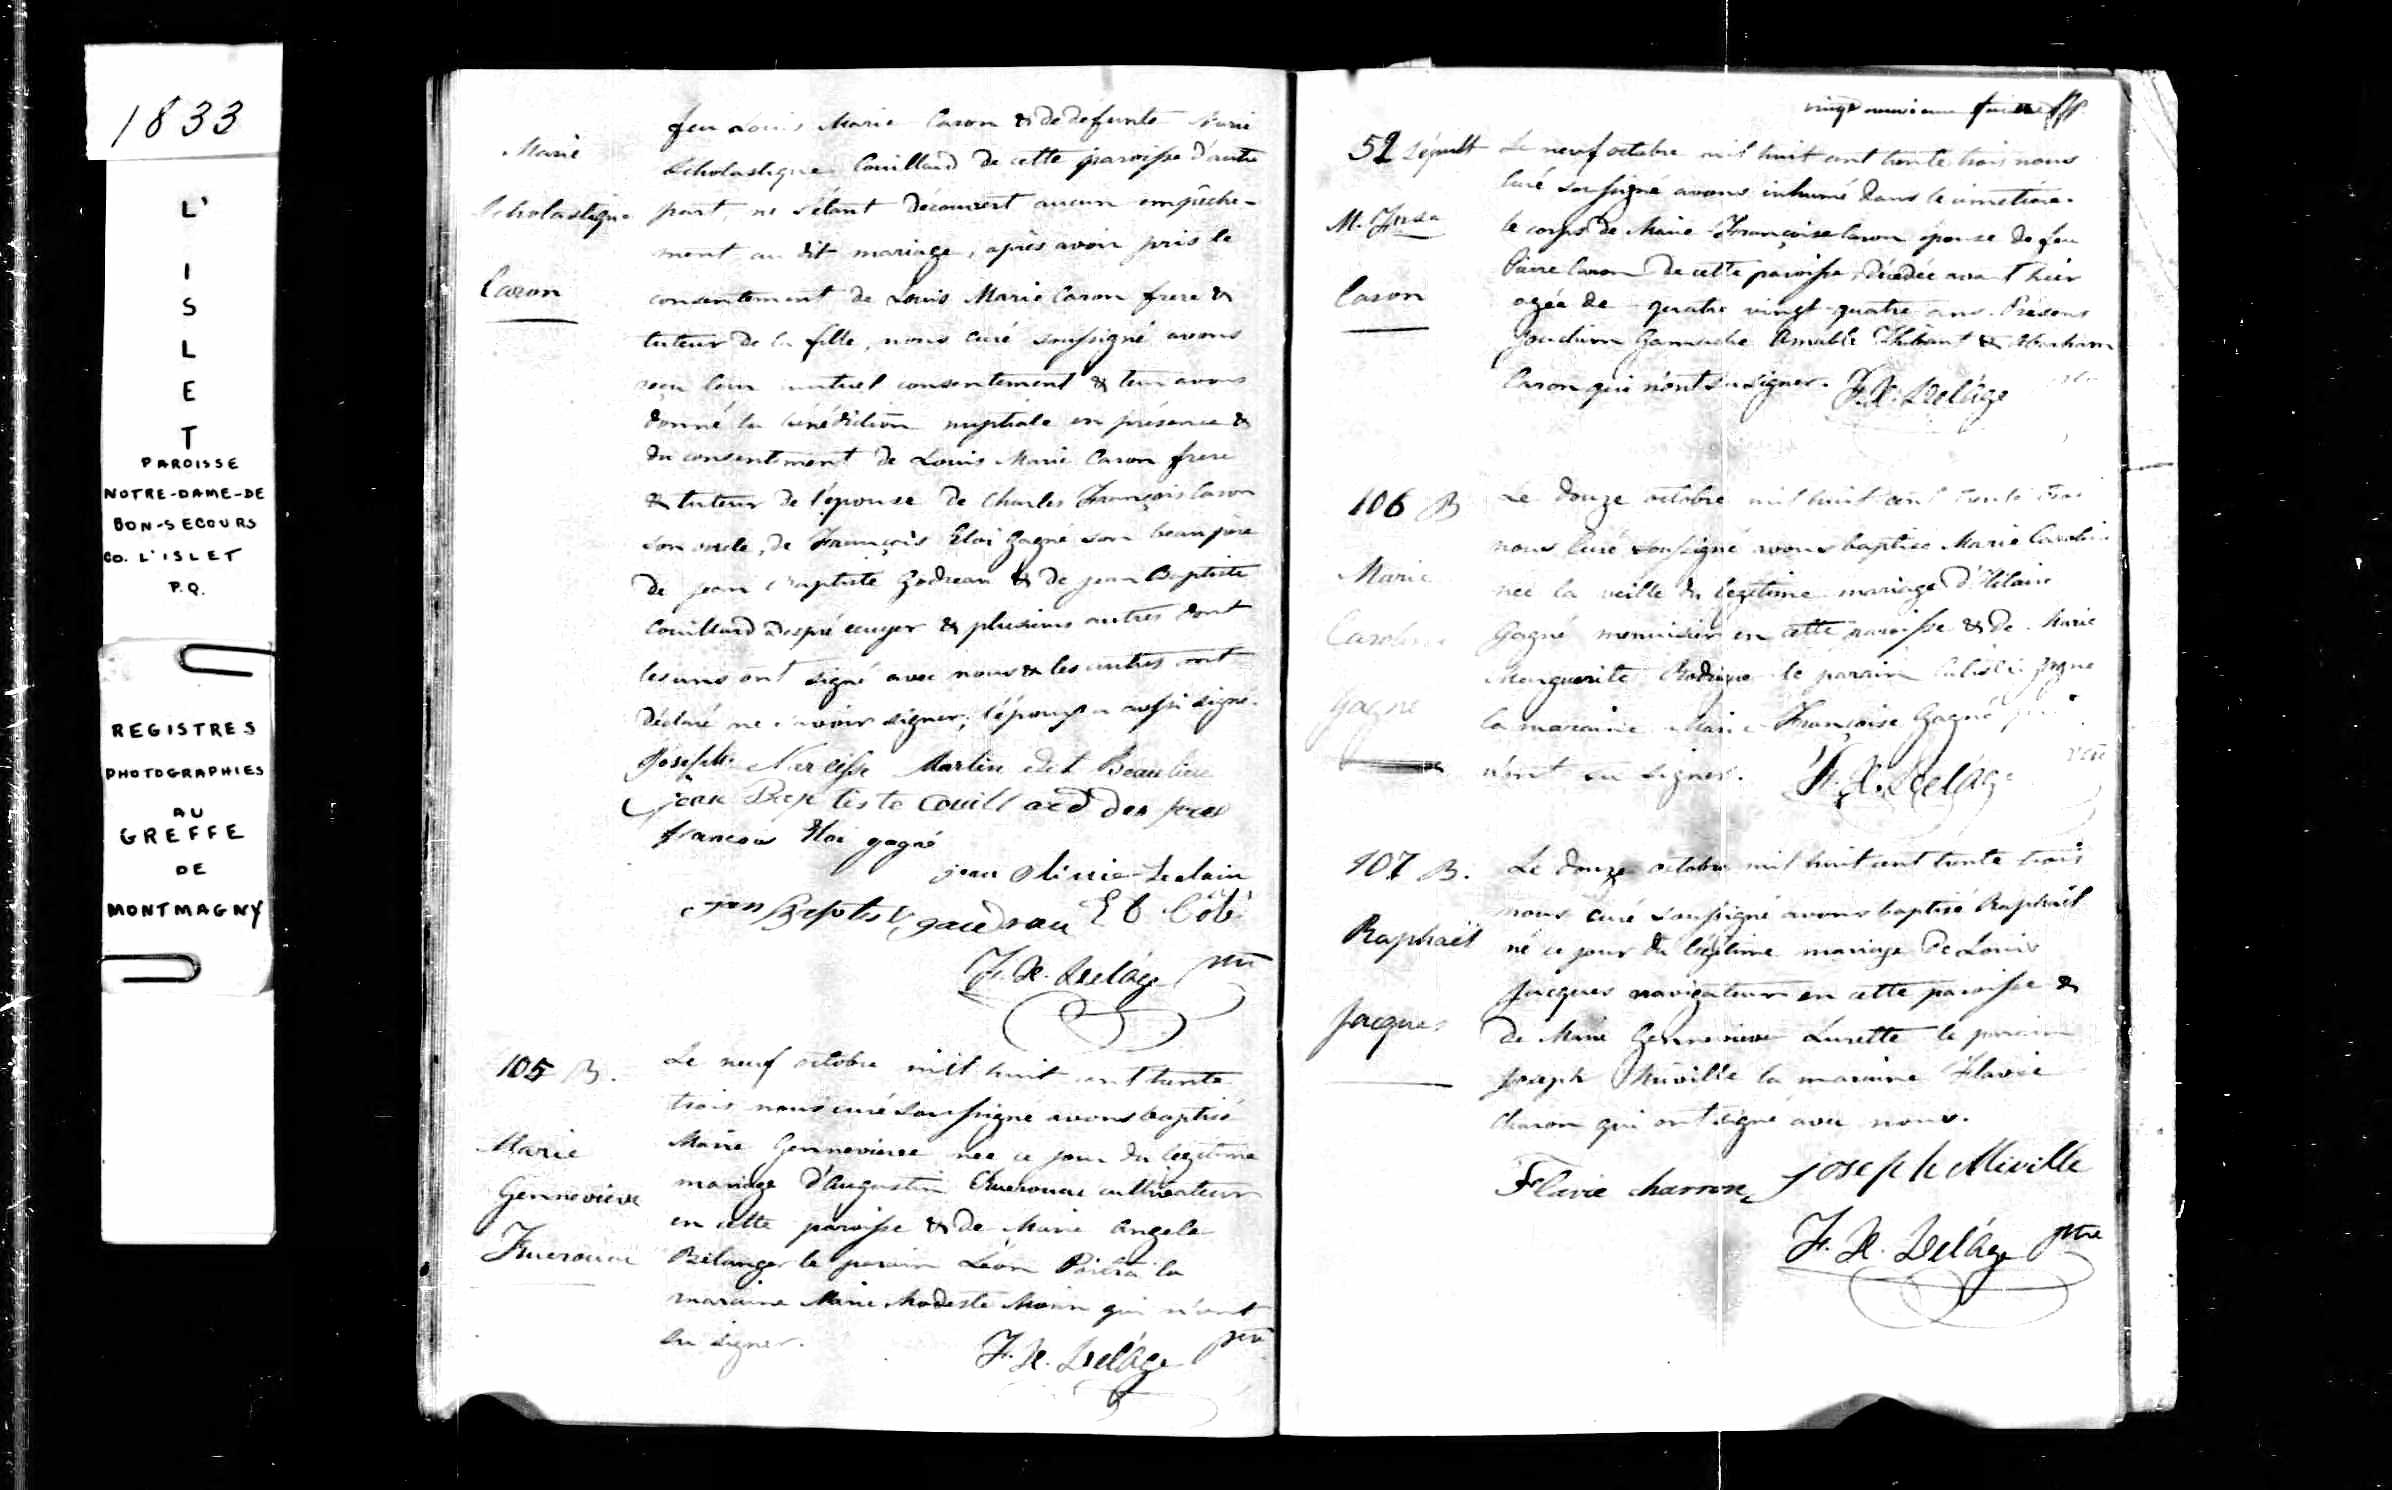 1833
L'
I
S
L
E
T
PAROISSE
NOTRE-DAME-DE
BON-SECOURS
CO. L'ISLET
P.Q.
REGISTRES
PHOTOGRAPHIES
AU
GREFFE
DE
MONTMAGNY
Marie
Scholastique
Caron
feu Louis Marie Caron & de defunte Marie
Scholastique Couillard de cette paroisse d'autre
part, ne s'étant découvert aucun empêche-
ment au dit mariage, après avoir pris le
consentement de Louis Marie Caron frere &
tuteur de la fille, nous curé soussigné avons
reçu leur mutuel consentement & leur avons
donné la bénédiction nuptiale en présence &
du consentement de Louis Marie Caron frere
& tuteur de l'épouse de Charles François Caron
son oncle, de François Eloi Gagné son beaupère
de jean Baptiste Godreau & de jean Baptiste
Couillard Després ecuyer & plusieurs autres dont
les uns ont signé avec nous & les autres ont
déclaré ne savoir signer; l'époux a aussi signé.
Joseph Narcisse Martin dit Beaulieu
jean Baptiste Couillard des pres
francois Eloi gagné
jean Leclair
Baptiste gaudrau Et Coté
F. X. Delâge ptre
105 B.
Marie
Gennevieve
Fuerouac
Le neuf octobre mil huit cent trente
trois nous curé soussigné avons baptisé
Marie Gennevieve née ce jour du légitime
mariage d'Augustin cultivateur
en cette paroisse & de Marie Angele
Bélanger le parain Léon la
maraine Marie Modeste Morin qui n'ont
su signer.
F. X. Delâge ptre
vingt neuvieme
52 Sépult
M. Fnse
Caron
Le neuf octobre mil huit cent trente trois nous
curé soussigné avons inhumé dans le cimetière
le corps de Marie Françoise Caron épouse de feu
Pierre Caron de cette paroisse, décédée avant hier
agée de quatre vingt quatre ans. Présens
Gamache Amable Thibaut & Abraham
Caron qui n'ont su signer. F. X. Delâge ptre
106 B
Marie
Caroline
Gagné
Le douze octobre mil huit cent trente trois
nous curé soussigné avons baptisé Marie Caroline
née la veille du légitime mariage d'Hilaire
Gagné menuisier en cette paroisse & de Marie
Marguerite Rodrigue le parain Gagné
la maraine Marie Françoise Gagné qui
n'ont su signer. F. X. Delâge ptre
107 B.
Raphaël
Jacques
Le douze octobre mil huit cent trente trois
nous curé soussigné avons baptisé Raphaël
né ce jour du légitime mariage de Louis
Jacques navigateur en cette paroisse &
de Marie Gennevieve Lurette le parain
Joseph Miville la maraine Flavie
Charon qui ont signé avec nous.
Flavie charron joseph Miville
F. X. Delâge ptre